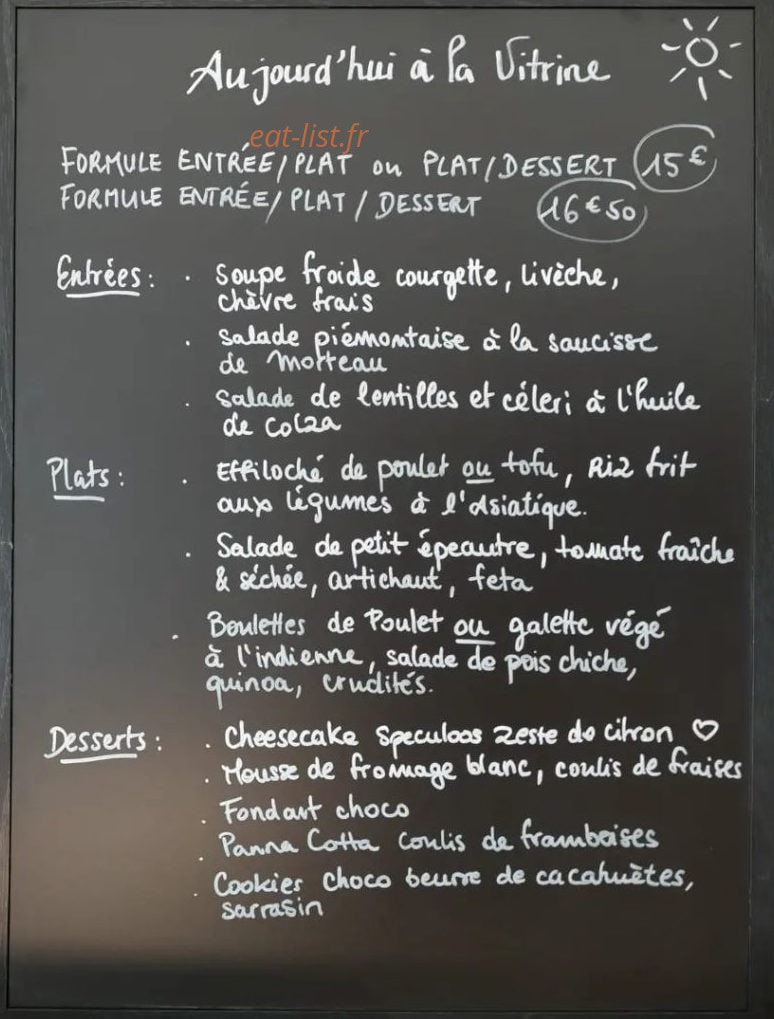 Aujourd'hui à la Vitrine
eat-list.fr
FORMULE ENTRÉE/PLAT ou PLAT/DESSERT 15€
FORMULE ENTRÉE/PLAT/DESSERT 16€50
Entrées : . Soupe froide courgette, livèche,
chèvre frais
. Salade piémontaise à la saucisse
de Morteau
. Salade de lentilles et céleri à l'huile
de colza
Plats : . Effiloché de poulet ou tofu, Riz frit
aux légumes à l'Asiatique.
. Salade de petit épeautre, tomate fraîche
& séchée, artichaut, feta
. Boulettes de Poulet ou galette végé
à l'indienne, salade de pois chiche,
quinoa, crudités.
Desserts : . Cheesecake Speculoos zeste de citron ♡
. Mousse de fromage blanc, coulis de fraises
. Fondant choco
. Panna Cotta coulis de framboises
. Cookies choco beurre de cacahuètes,
sarrasin